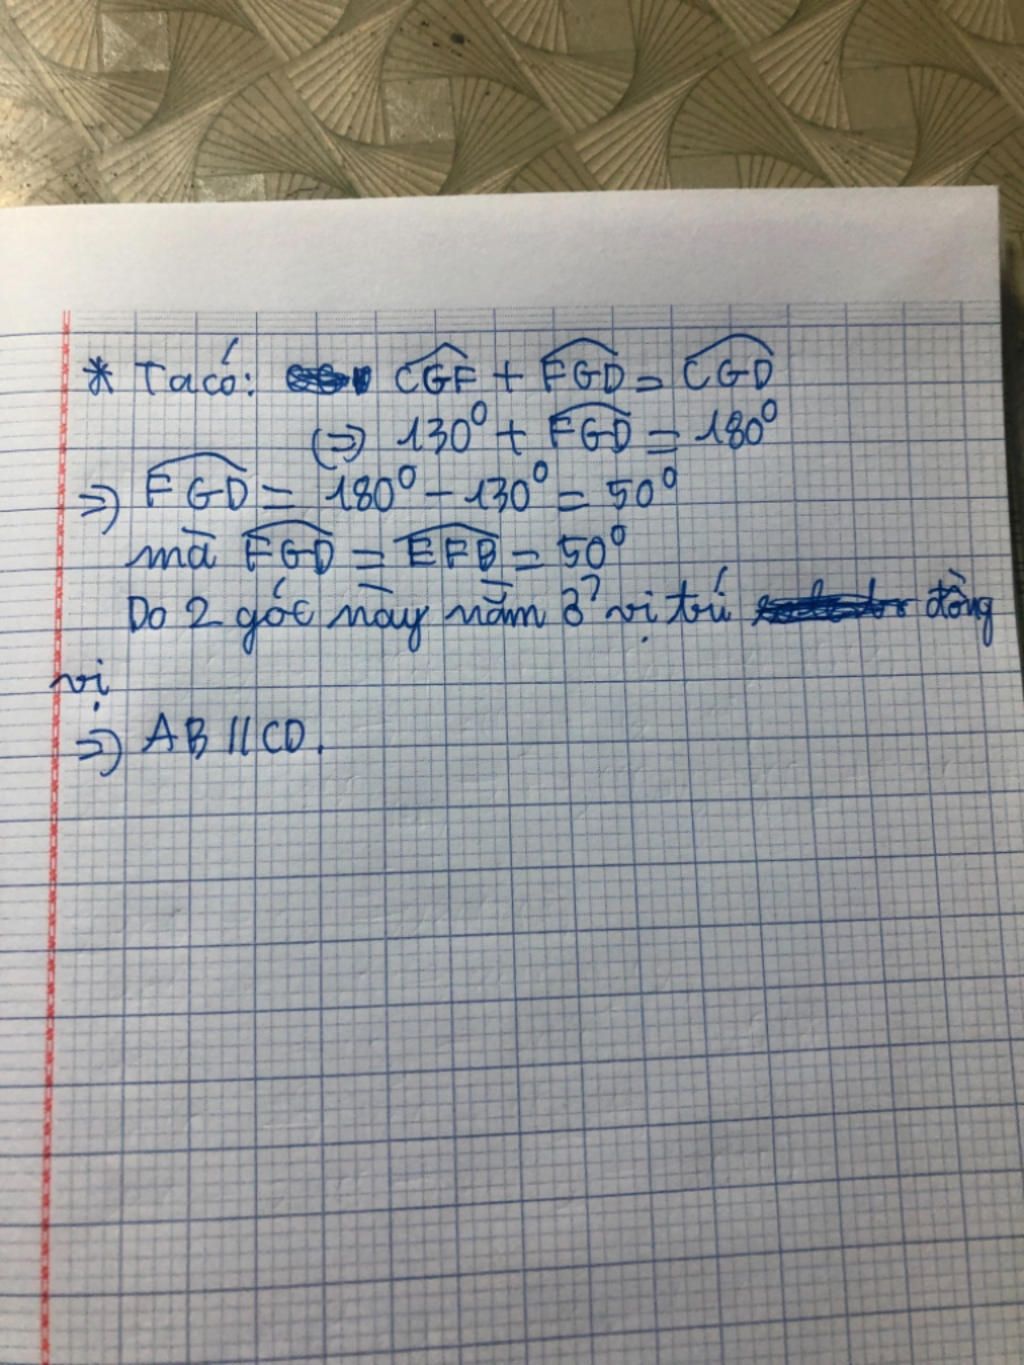 * Ta có: CGF + FGD = CGD
(⇒) 130⁰ + FGD = 180⁰
⇒) FGD = 180⁰ - 130⁰ = 50⁰
mà FGD = EFB = 50⁰
Do 2 góc này nằm ở vị trí đồng
vị
⇒) AB // CD.